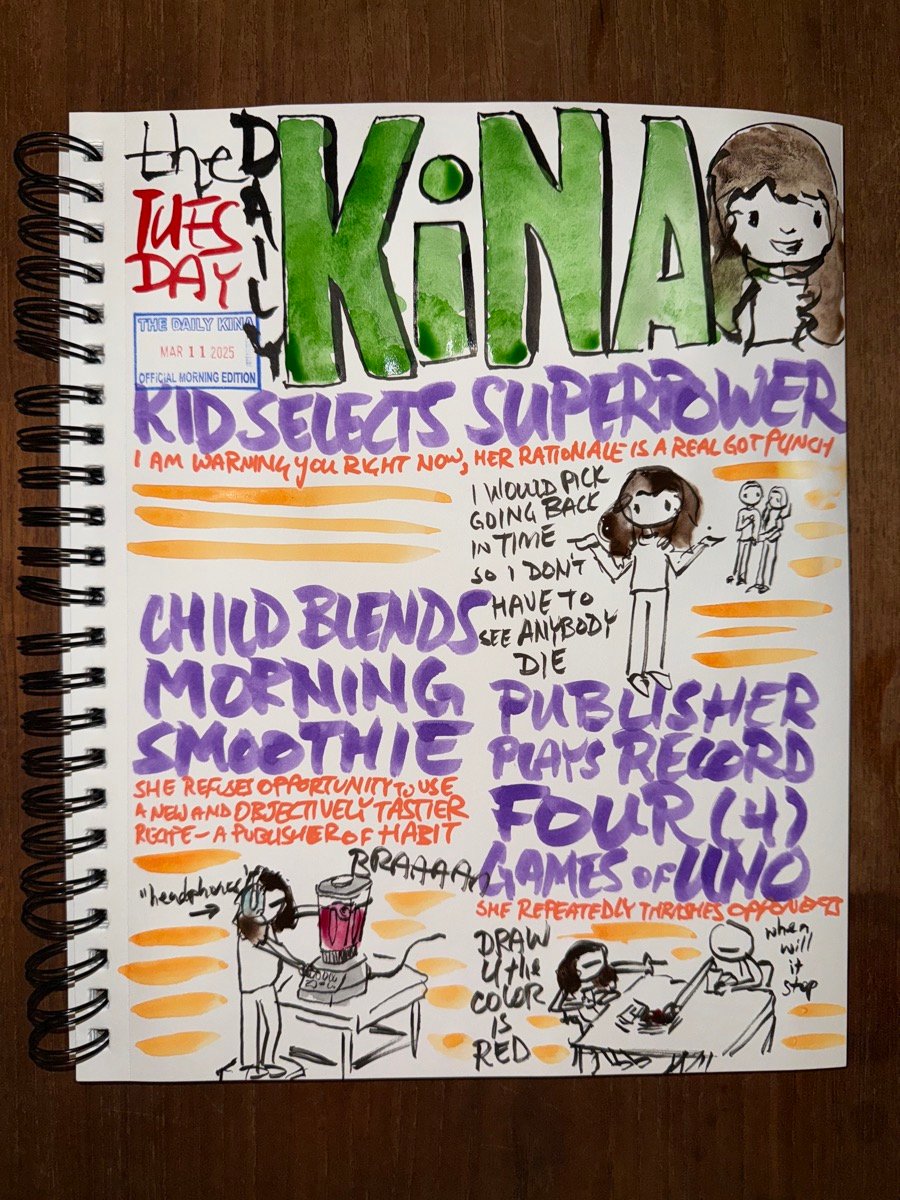 the
DAILY
KiNA
TUES
DAY
THE DAILY KINA
MAR 11 2025
OFFICIAL MORNING EDITION
KID SELECTS SUPERPOWER
I AM WARNING YOU RIGHT NOW, HER RATIONALE IS A REAL GOT PUNCH
I WOULD PICK
GOING BACK
IN TIME
SO I DON'T
HAVE TO
SEE ANYBODY
DIE
CHILD BLENDS
MORNING
SMOOTHIE
SHE REFUSES OPPORTUNITY TO USE
A NEW AND OBJECTIVELY TASTIER
RECIPE - A PUBLISHER OF HABIT
"headphones"
BRAAAAA
PUBLISHER
PLAYS RECORD
FOUR (4)
GAMES OF UNO
SHE REPEATEDLY THRASHES OPPONENTS
DRAW
4 the
COLOR
IS
RED
when
will
it
stop